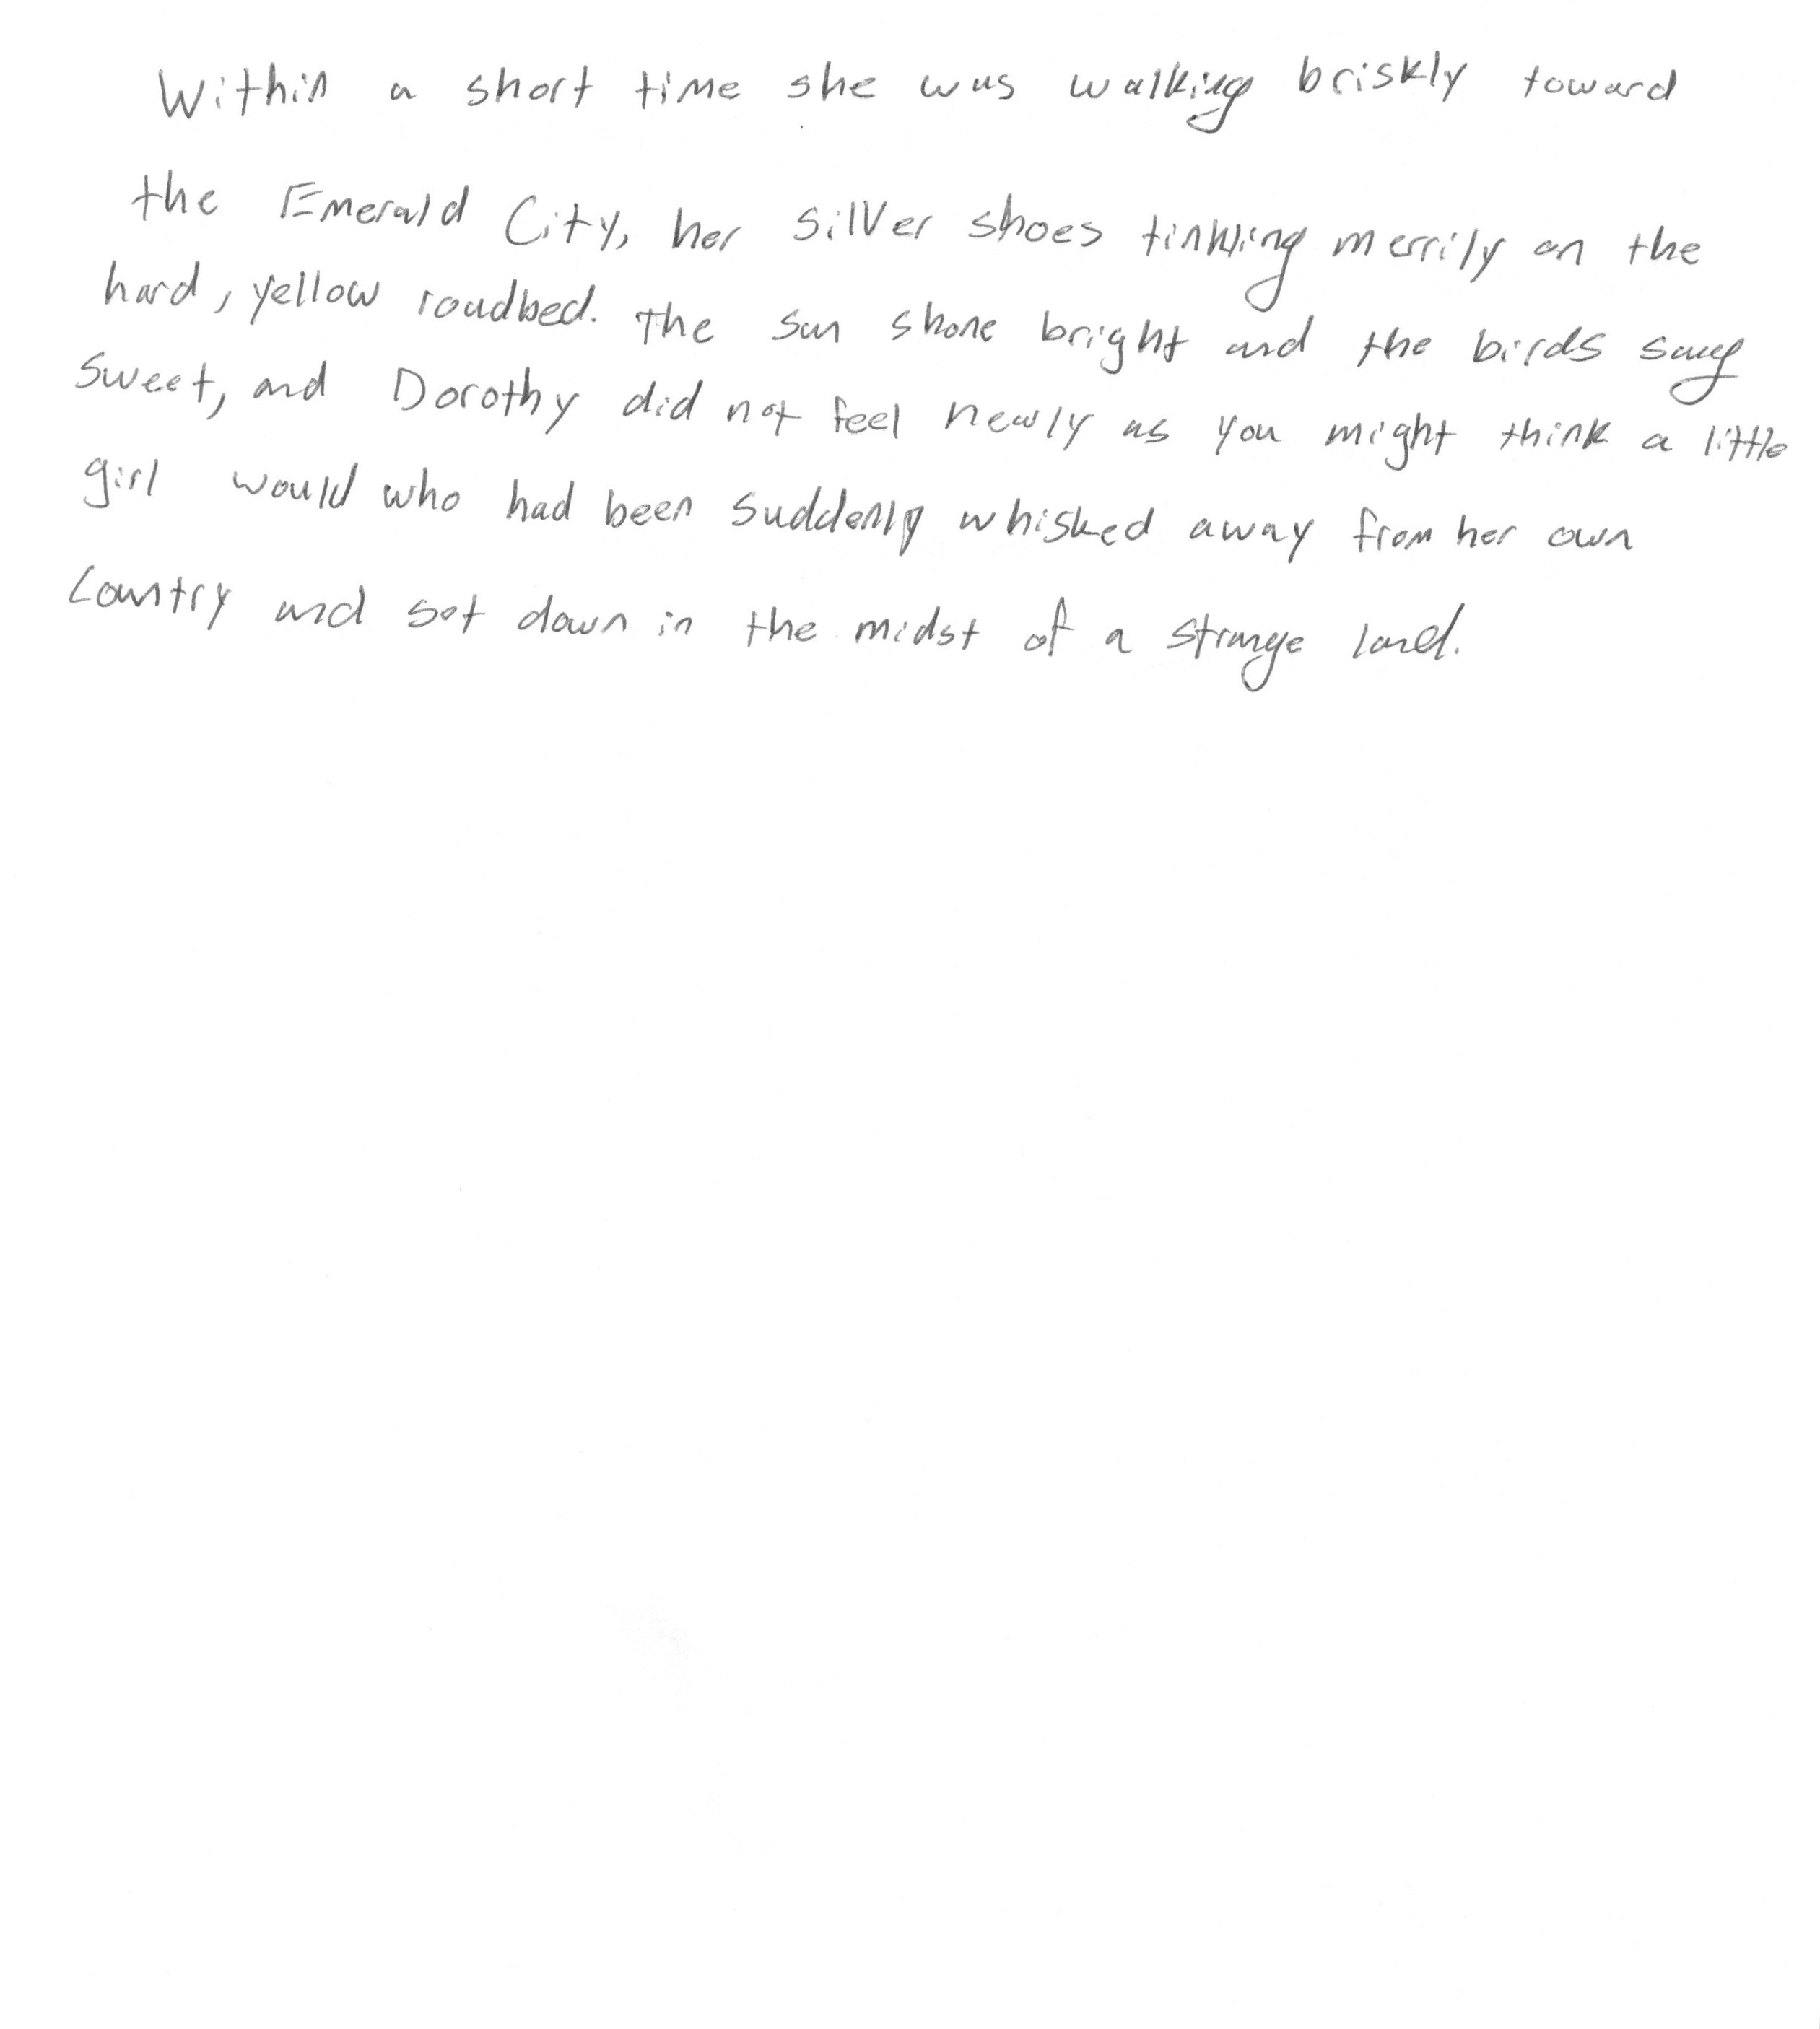 Within a short time she was walking briskly toward
the Emerald City, her silver shoes tinkling merrily on the
hard, yellow roadbed. The sun shone bright and the birds sang
sweet, and Dorothy did not feel nearly as you might think a little
girl would who had been suddenly whisked away from her own
country and set down in the midst of a strange land.